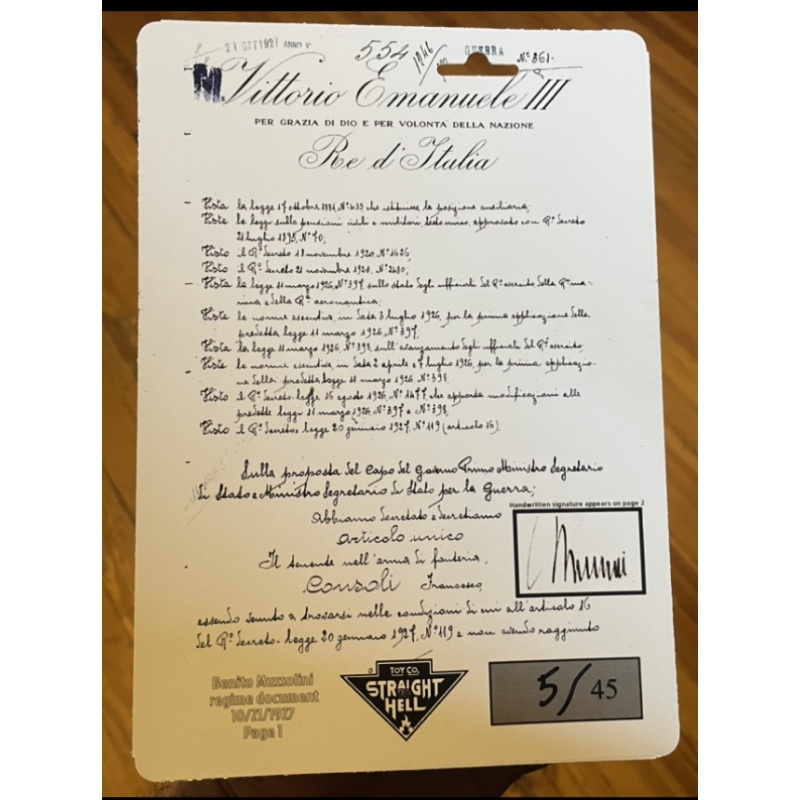 21 OTT 1927 ANNO V°
554
1046
GUERRA
N° 861.
M.
Vittorio Emanuele III
PER GRAZIA DI DIO E PER VOLONTA' DELLA NAZIONE
Re d'Italia
Vista la legge 17 ottobre 1881, N° 435, che istituisce la posizione ausiliaria;
Viste le leggi sulle pensioni civili e militari, testo unico, approvato con R° Decreto
21 luglio 1895, N° 70;
Visto il R° Decreto 18 novembre 1920, N° 1626;
Visto il R° Decreto 21 novembre 1923, N° 2480;
Vista la legge 11 marzo 1926, N° 397, sullo stato degli ufficiali del R° esercito della R° ma-
rina e della R° aeronautica;
Viste le norme esecutive, in data 3 luglio 1926, per la prima applicazione della
predetta legge 11 marzo 1926, N° 397;
Vista la legge 11 marzo 1926, N° 398, sull'avanzamento degli ufficiali del R° esercito;
Viste le norme esecutive, in data 2 aprile e 7 luglio 1926, per la prima applicazio-
ne della predetta legge 11 marzo 1926 N° 398;
Visto il R° Decreto-legge 15 agosto 1926, N° 1477, che apporta modificazioni alle
predette leggi 11 marzo 1926, N° 397 e N° 398;
Visto il R° Decreto legge 20 gennaio 1927, N° 119 (articolo 16).
Sulla proposta del Capo del Governo Primo Ministro Segretario
di Stato e Ministro Segretario di Stato per la Guerra;
Handwritten signature appears on page 2
Abbiamo Decretato e Decretiamo
Articolo unico
Il tenente nell'arma di fanteria,
Consoli Francesco,
essendo venuto a trovarsi nelle condizioni di cui all'articolo 16
del R° Decreto-legge 20 gennaio 1927, N° 119 e non avendo raggiunto
Benito Muzzolini
regime document
10/21/1927
Page 1
TOY CO.
STRAIGHT
HELL
5/45